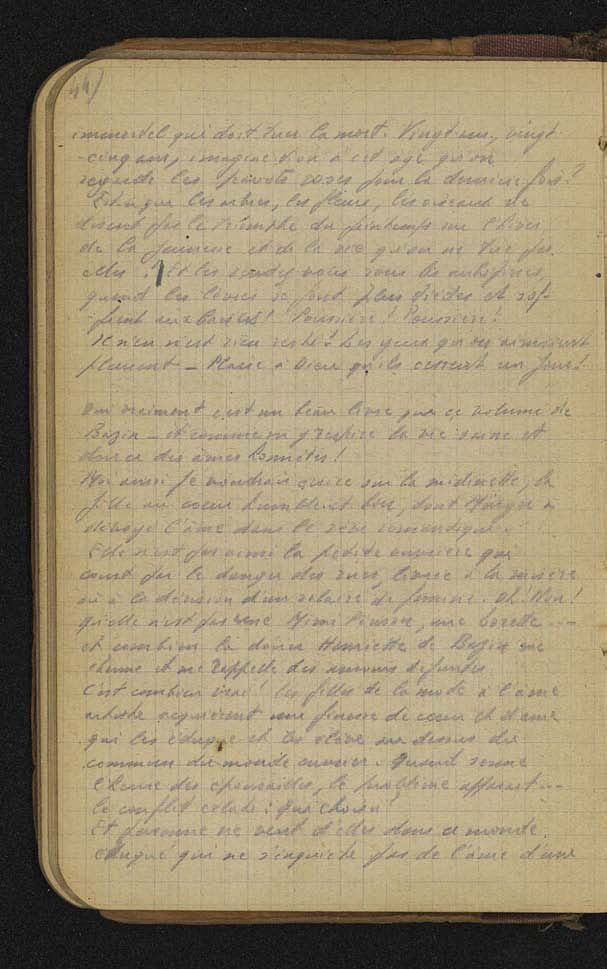 44)
immortel qui doit tuer la mort. Vingt ans, vingt
-cinq ans, imagine-t'on à cet age qu'on
regarde les roses pour la dernière fois?
Est-ce que les arbres, les fleurs, les oiseaux ne
disent pas le triomphe du printemps sur l'hiver,
de la jeunesse et de la vie qu'on ne tue pas
elles !? Et les rendez vous sous les aubépines,
quand les lèvres se font plus tièdes et s'of-
-frent aux baisers! Poussière! Poussière!
Il n'en n'est rien resté! Les yeux qui se
pleurent – Plaise à Dieu qu'ils cessent un jour!
Oui vraiment c'est un beau livre que ce volume de
Bazin – et comme on y respire la vie saine et
douce des âmes honnêtes!
Moi aussi je voudrais écrire sur la midinette, la
fille au coeur humble et bon, dont Murger a
l'âme dans le rêve romantique.
Elle n'est pas ainsi la petite ouvrière qui
court par le danger des rues, livrée à la misère
ou à la dérision d'un salaire de famine. Oh! Non!
Qu'elle n'est pas une Mimi Pinson, une lorette ...
et combien la douce Henriette de Bazin me
charme et me rappelle des amours défuntes
C'est combien vrai! les filles de la mode à l'âme
artiste acquièrent une finesse de coeur et d'âme
qui les éduque et les élève au dessus du
commun du monde ouvrier. Quand sonne
l'heure des épousailles, le problème apparait ...
le conflit éclate: qui choisir?
Et personne ne veut d'elles dans ce monde
éduqué qui ne s'inquiète pas de l'âme d'une